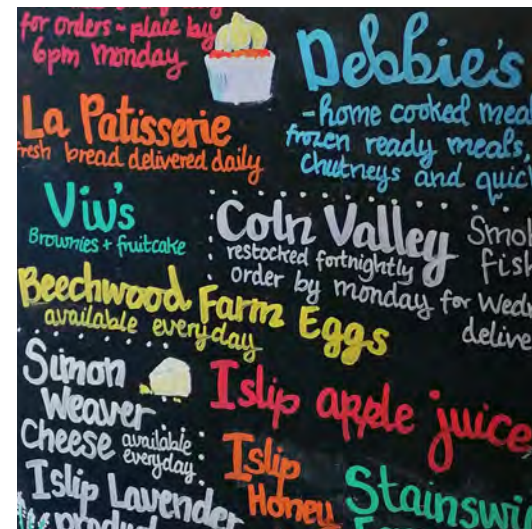 for orders ~ place by
6pm monday
Debbie's
-home cooked mea
frozen ready meals,
chutneys and quic
La Patisserie
fresh bread delivered daily
Viv's
Brownies + fruitcake
Coln Valley
restocked fortnightly
order by monday for Wed
Smok
fish
delive
Beechwood Farm Eggs
available everyday
Simon
Weaver
Cheese available
everyday
Islip apple juice
Islip
Honey
Islip Lavender
produc
Stainswi